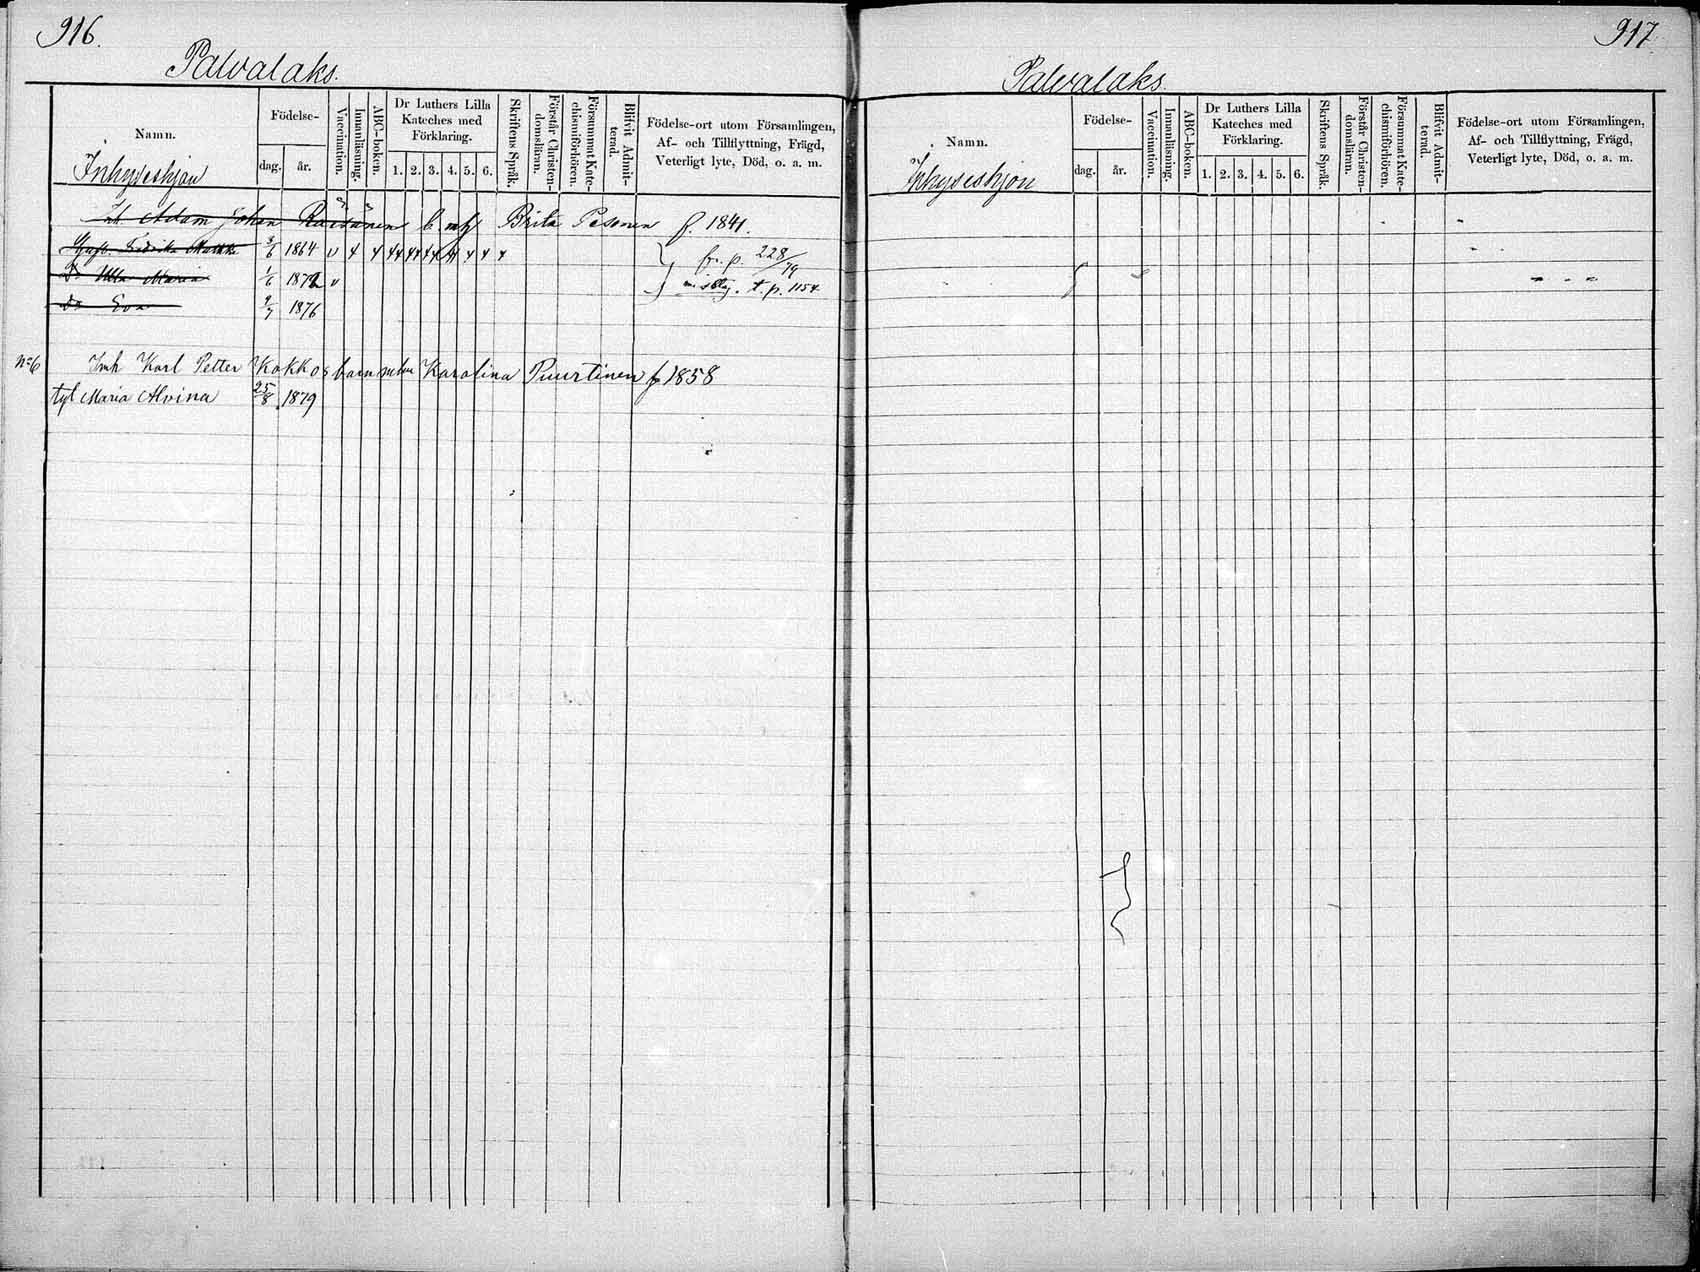 916.
Palvalaks.
Namn.
Inhyseshjon
Födelse-
dag.
år.
Vaccination.
Innanläsning.
ABC-boken.
Dr Luthers Lilla
Kateches med
Förklaring.
1. 2. 3. 4. 5. 6.
Skriftens Språk.
Förstår Christen-
domsläran.
Försummat Kate-
chismiförhören.
Blifvit Admit-
terad.
Födelse-ort utom Församlingen,
Af- och Tillflyttning, Frägd,
Veterligt lyte, Död, o. a. m.
Inh Adam Johan Räisänen b. m. h. Brita Pesonen f. 1841.
Fredrika 3/6 1864 v fr. p. 228/79
D:o Ulla Maria 1/6 1872 v t. p. 1154
D:o Eva 9/7 1876
No 6 Inh Karl Petter Kokkos barn Karolina Puurtinen f 1858
Maria Alvina 25/8 1879
917
Palvalaks.
Namn.
Inhyseshjon
Födelse-
dag.
år.
Vaccination.
Innanläsning.
ABC-boken.
Dr Luthers Lilla
Kateches med
Förklaring.
1. 2. 3. 4. 5. 6.
Skriftens Språk.
Förstår Christen-
domsläran.
Försummat Kate-
chismiförhören.
Blifvit Admit-
terad.
Födelse-ort utom Församlingen,
Af- och Tillflyttning, Frägd,
Veterligt lyte, Död, o. a. m.